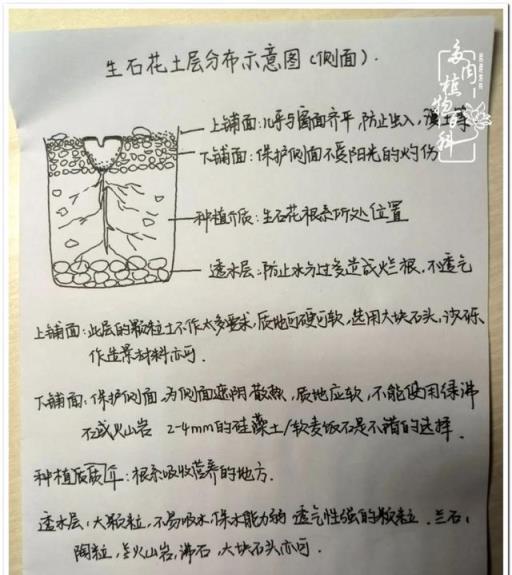 生石花土层分布示意图(侧面).
多肉植物百科
上铺面:几乎与窗面齐平,防止虫入,
下铺面:保护侧面不受阳光的灼伤
种植介质:生石花根系所处位置
透水层:防止水分过多造成烂根,不透气
上铺面:此层的颗粒土不作太多要求,质地可硬可软,选用大块石头,沙砾
作造景材料亦可.
下铺面:保护侧面,为侧面遮阴散热,质地应软,不能使用绿沸
石或火山岩 2-4mm的硅藻土/软麦饭石是不错的选择.
种植介质:根系吸收营养的地方.
透水层:大颗粒,不易吸水,保水能力 透气性强的颗粒.兰石,
陶粒,火山岩,沸石,大块石头亦可.